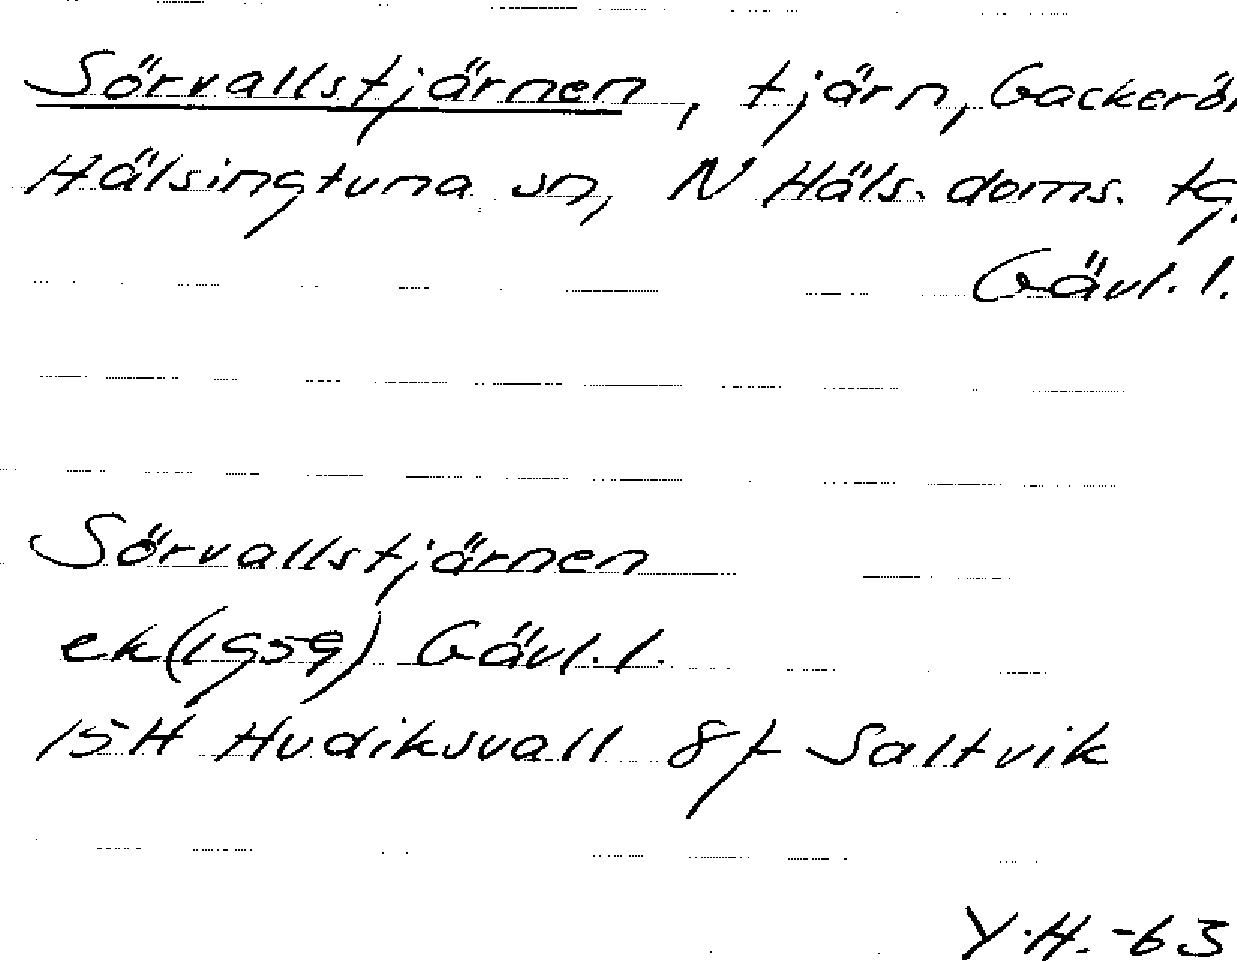 Sörvallstjärnen, tjärn, Gackerö,
Hälsingtuna sn, N Häls. doms. tg.
Gävl. l.
Sörvallstjärnen
ek(1959) Gävl. l.
15H Hudiksvall 8f Saltvik
Y.H.-63